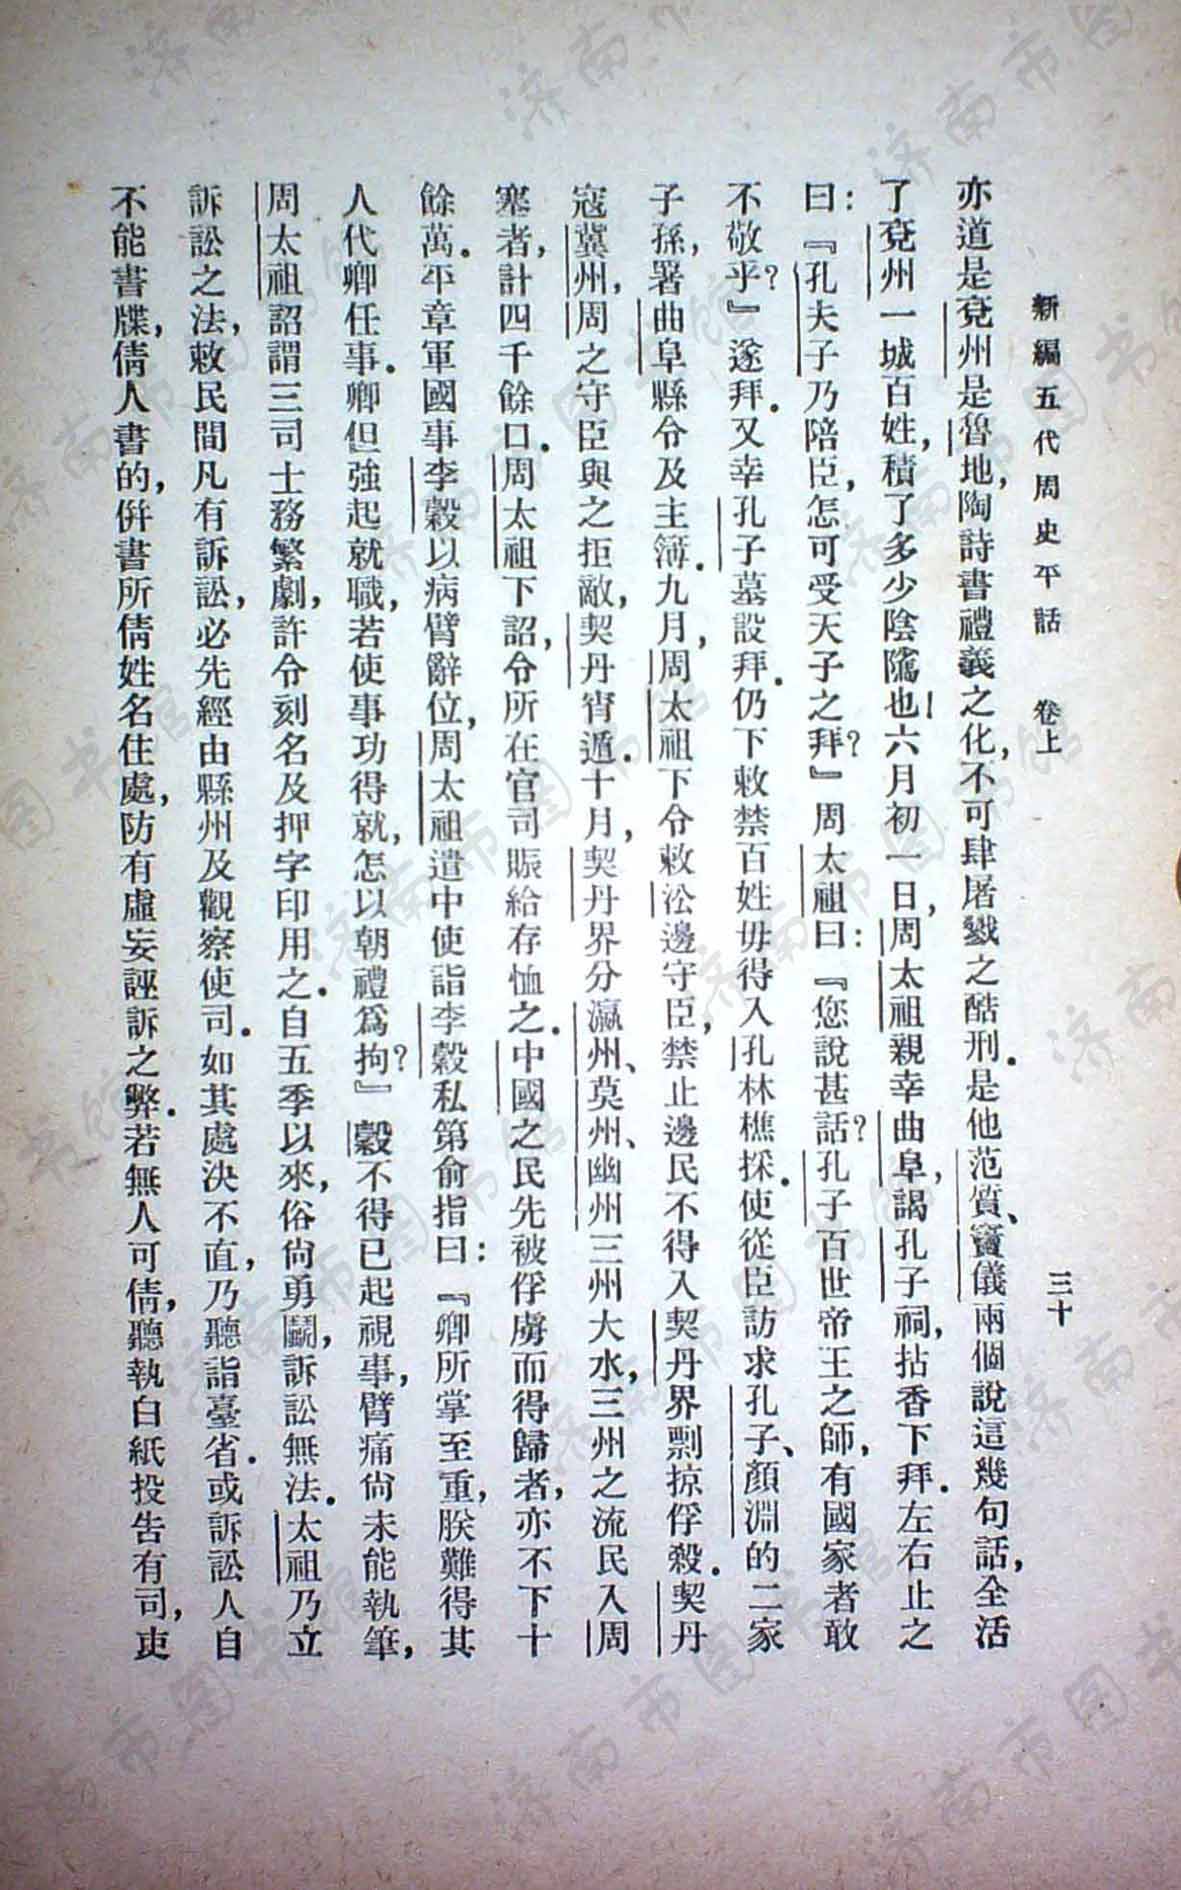 新編五代周史平話　卷上　三十
亦道是兗州是魯地，陶詩書禮義之化，不可肆屠戮之酷刑．是他范質、竇儀兩個說這幾句話，全活
了兗州一城百姓，積了多少陰隲也！六月初一日，周太祖親幸曲阜，謁孔子祠，拈香下拜．左右止之
曰：『孔夫子乃陪臣，怎可受天子之拜？』周太祖曰：『您說甚話？孔子百世帝王之師，有國家者敢
不敬乎？』遂拜．又幸孔子墓設拜．仍下敕禁百姓毋得入孔林樵採．使從臣訪求孔子、顏淵的二家
子孫，署曲阜縣令及主簿．九月，周太祖下令敕㳂邊守臣，禁止邊民不得入契丹界剽掠俘殺．契丹
寇冀州，周之守臣與之拒敵，契丹宵遁．十月，契丹界分瀛州、莫州、幽州三州大水，三州之流民入周
塞者，計四千餘口．周太祖下詔，令所在官司賑給存恤之．中國之民先被俘虜而得歸者，亦不下十
餘萬．平章軍國事李穀以病臂辭位，周太祖遣中使詣李穀私第俞指曰：『卿所掌至重，朕難得其
人代卿任事．卿但強起就職，若使事功得就，怎以朝禮爲拘？』穀不得已起視事，臂痛尙未能執筆，
周太祖詔謂三司士務繁劇，許令刻名及押字印用之．自五季以來，俗尙勇鬭，訴訟無法．太祖乃立
訴訟之法，敕民間凡有訴訟，必先經由縣州及觀察使司．如其處決不直，乃聽詣臺省．或訴訟人自
不能書牒，倩人書的，併書所倩姓名住處，防有虛妄誣訴之弊．若無人可倩，聽執白紙投告有司，吏
济南市图书馆